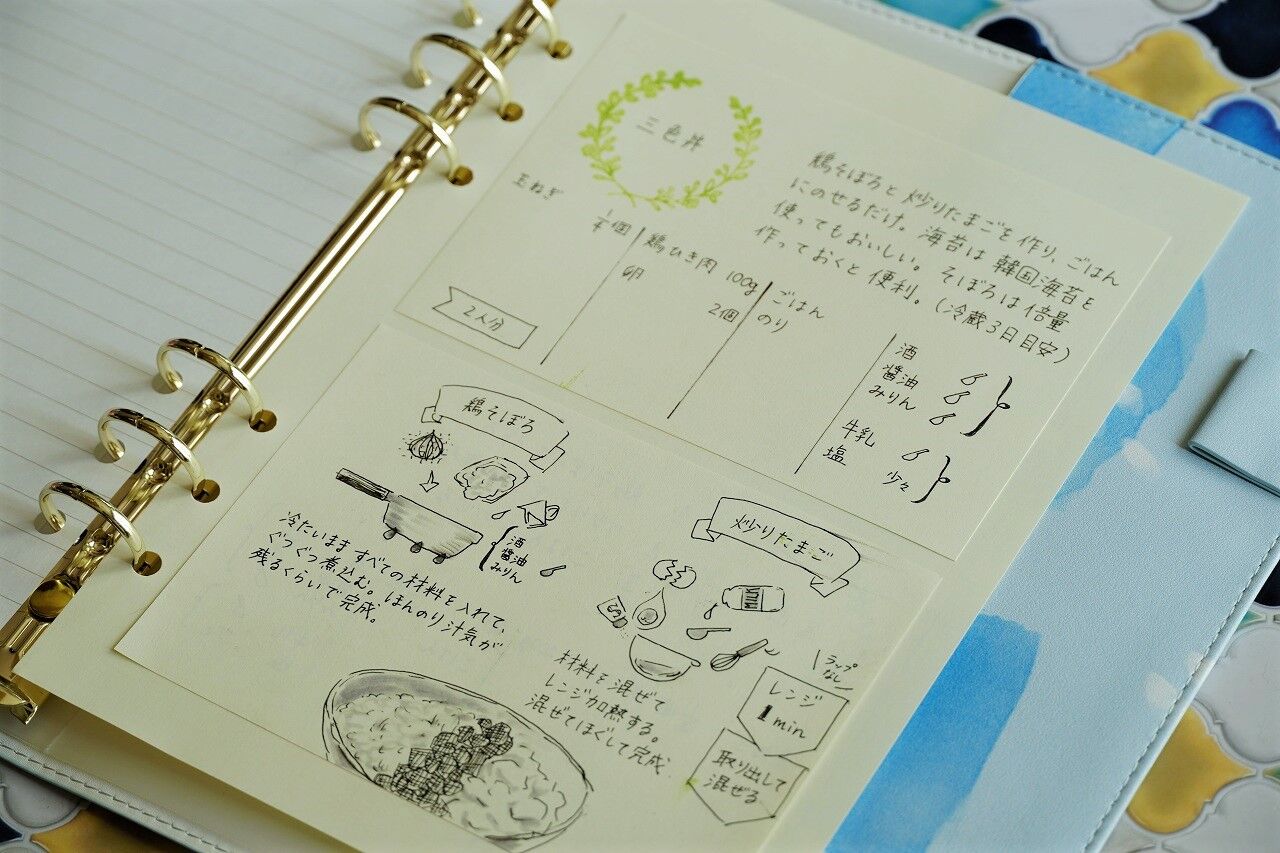 三色丼
鶏そぼろと炒りたまごを作り、ごはん
にのせるだけ。海苔は韓国海苔を
使ってもおいしい。そぼろは倍量
作っておくと便利。(冷蔵3日目安)
玉ねぎ
1/4個
鶏ひき肉 100g
卵 2個
ごはん
のり
酒
醤油
みりん
牛乳
塩 少々
2人分
鶏そぼろ
酒
醤油
みりん
冷たいまますべての材料を入れて、
ぐつぐつ煮込む。ほんのり汁気が
残るくらいで完成。
炒りたまご
MILK
材料を混ぜて
レンジ加熱する。
混ぜてほぐして完成。
ラップ
なし
レンジ
1min
取り出して
混ぜる